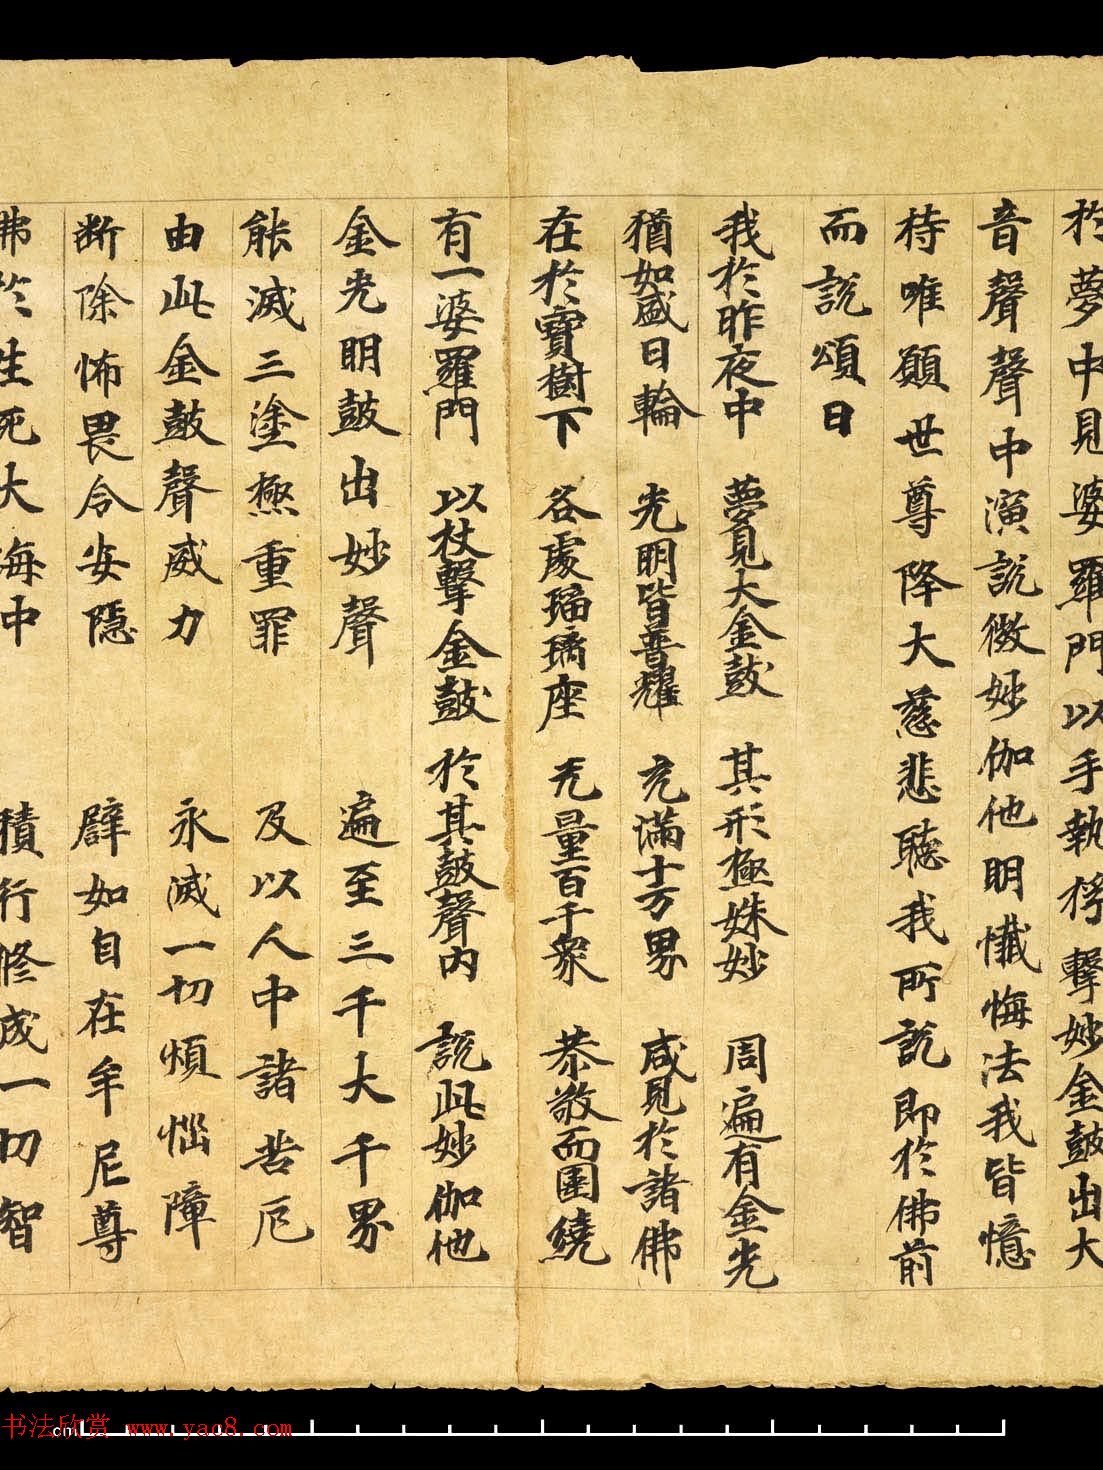 於夢中見婆羅門以手執桴擊妙金鼓出大
音聲聲中演說微妙伽他明懺悔法我皆憶
持唯願世尊降大慈悲聽我所說即於佛前
而說頌曰
我於昨夜中 夢見大金鼓 其形極姝妙 周遍有金光
猶如盛日輪 光明皆普耀 充滿十方界 咸見於諸佛
在於寶樹下 各處瑠璃座 无量百千衆 恭敬而圍繞
有一婆羅門 以杖擊金鼓 於其鼓聲內 說此妙伽他
金光明鼓出妙聲 遍至三千大千界
能滅三塗極重罪 及以人中諸苦厄
由此金鼓聲威力 永滅一切煩惱障
断除怖畏令安隱 辟如自在牟尼尊
佛於生死大海中 積行修成一切智
书法欣赏 www.yac8.com
cm